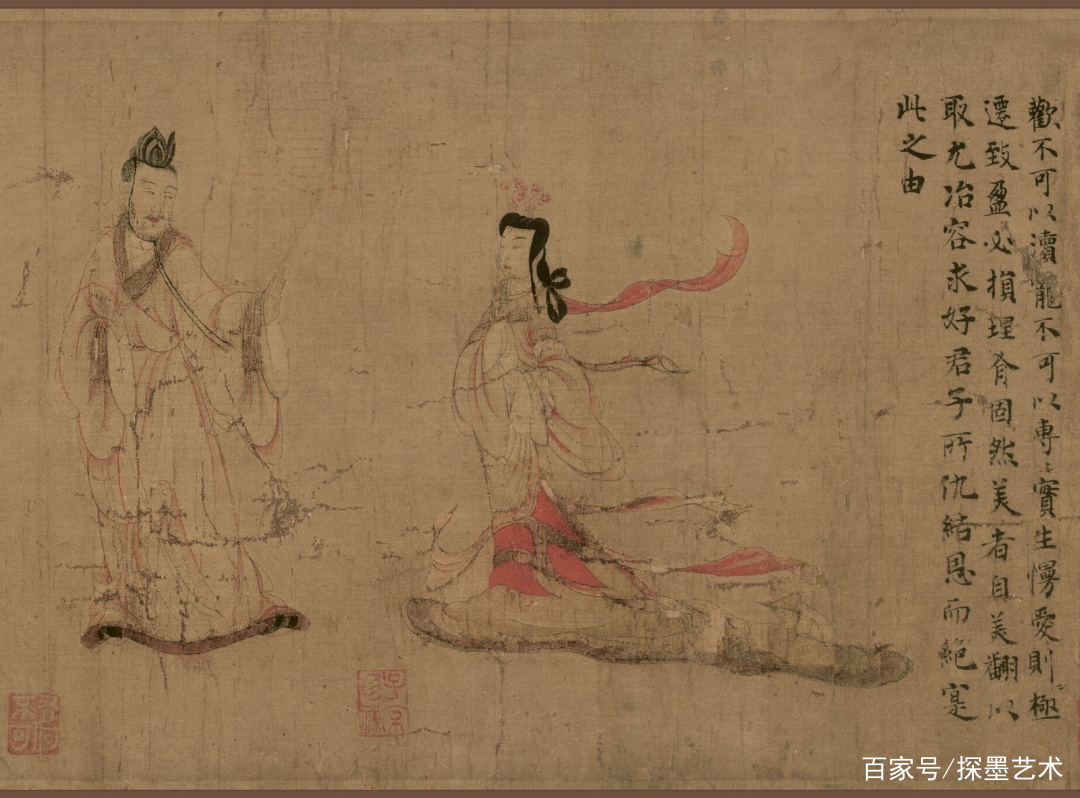 歡不可以瀆寵不可以專〻實生慢愛則極
遷致盈必損理有固然美者自美翩以
取尤冶容求好君子所仇結恩而絶寔
此之由
百家号/探墨艺术